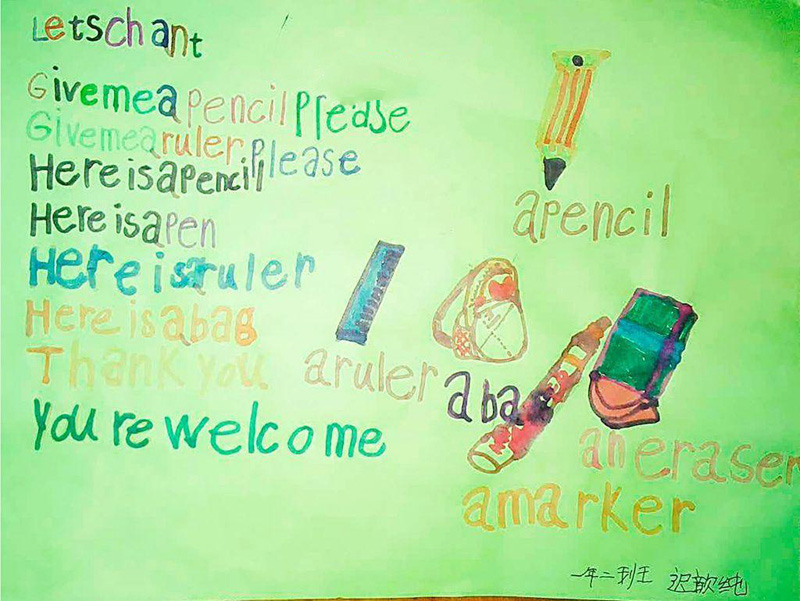 Letschant
Givemea pencil Please
Givemea ruler Please
Here is a pencil
Here is a pen
Here is a ruler
Here is a bag
Thank you
you re welcome
a pencil
a ruler
a ba
an eraser
a marker
一年二班 迟歆纯